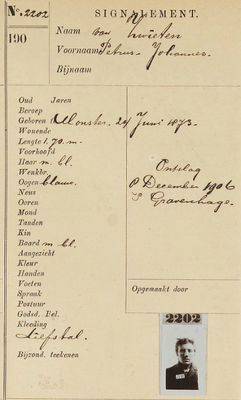 No. 2202
SIGNALEMENT.
190
Naam van Zwieten
Voornaam Petrus Johannes.
Bijnaam
Oud Jaren
Beroep
Geboren Monster. 29 Juni 1873.
Wonende
Lengte 1.70 m.
Voorhoofd
Haar m. bl.
Wenkbr.
Oogen blauw.
Neus
Ooren
Mond
Tanden
Kin
Baard m bl.
Aangezicht
Kleur
Handen
Voeten
Spraak
Postuur
Godsd. Bel.
Kleeding
Liefstal.
Bijzond. teekenen
Ontslag
8 December 1906
's Gravenhage.
Opgemaakt door
2202